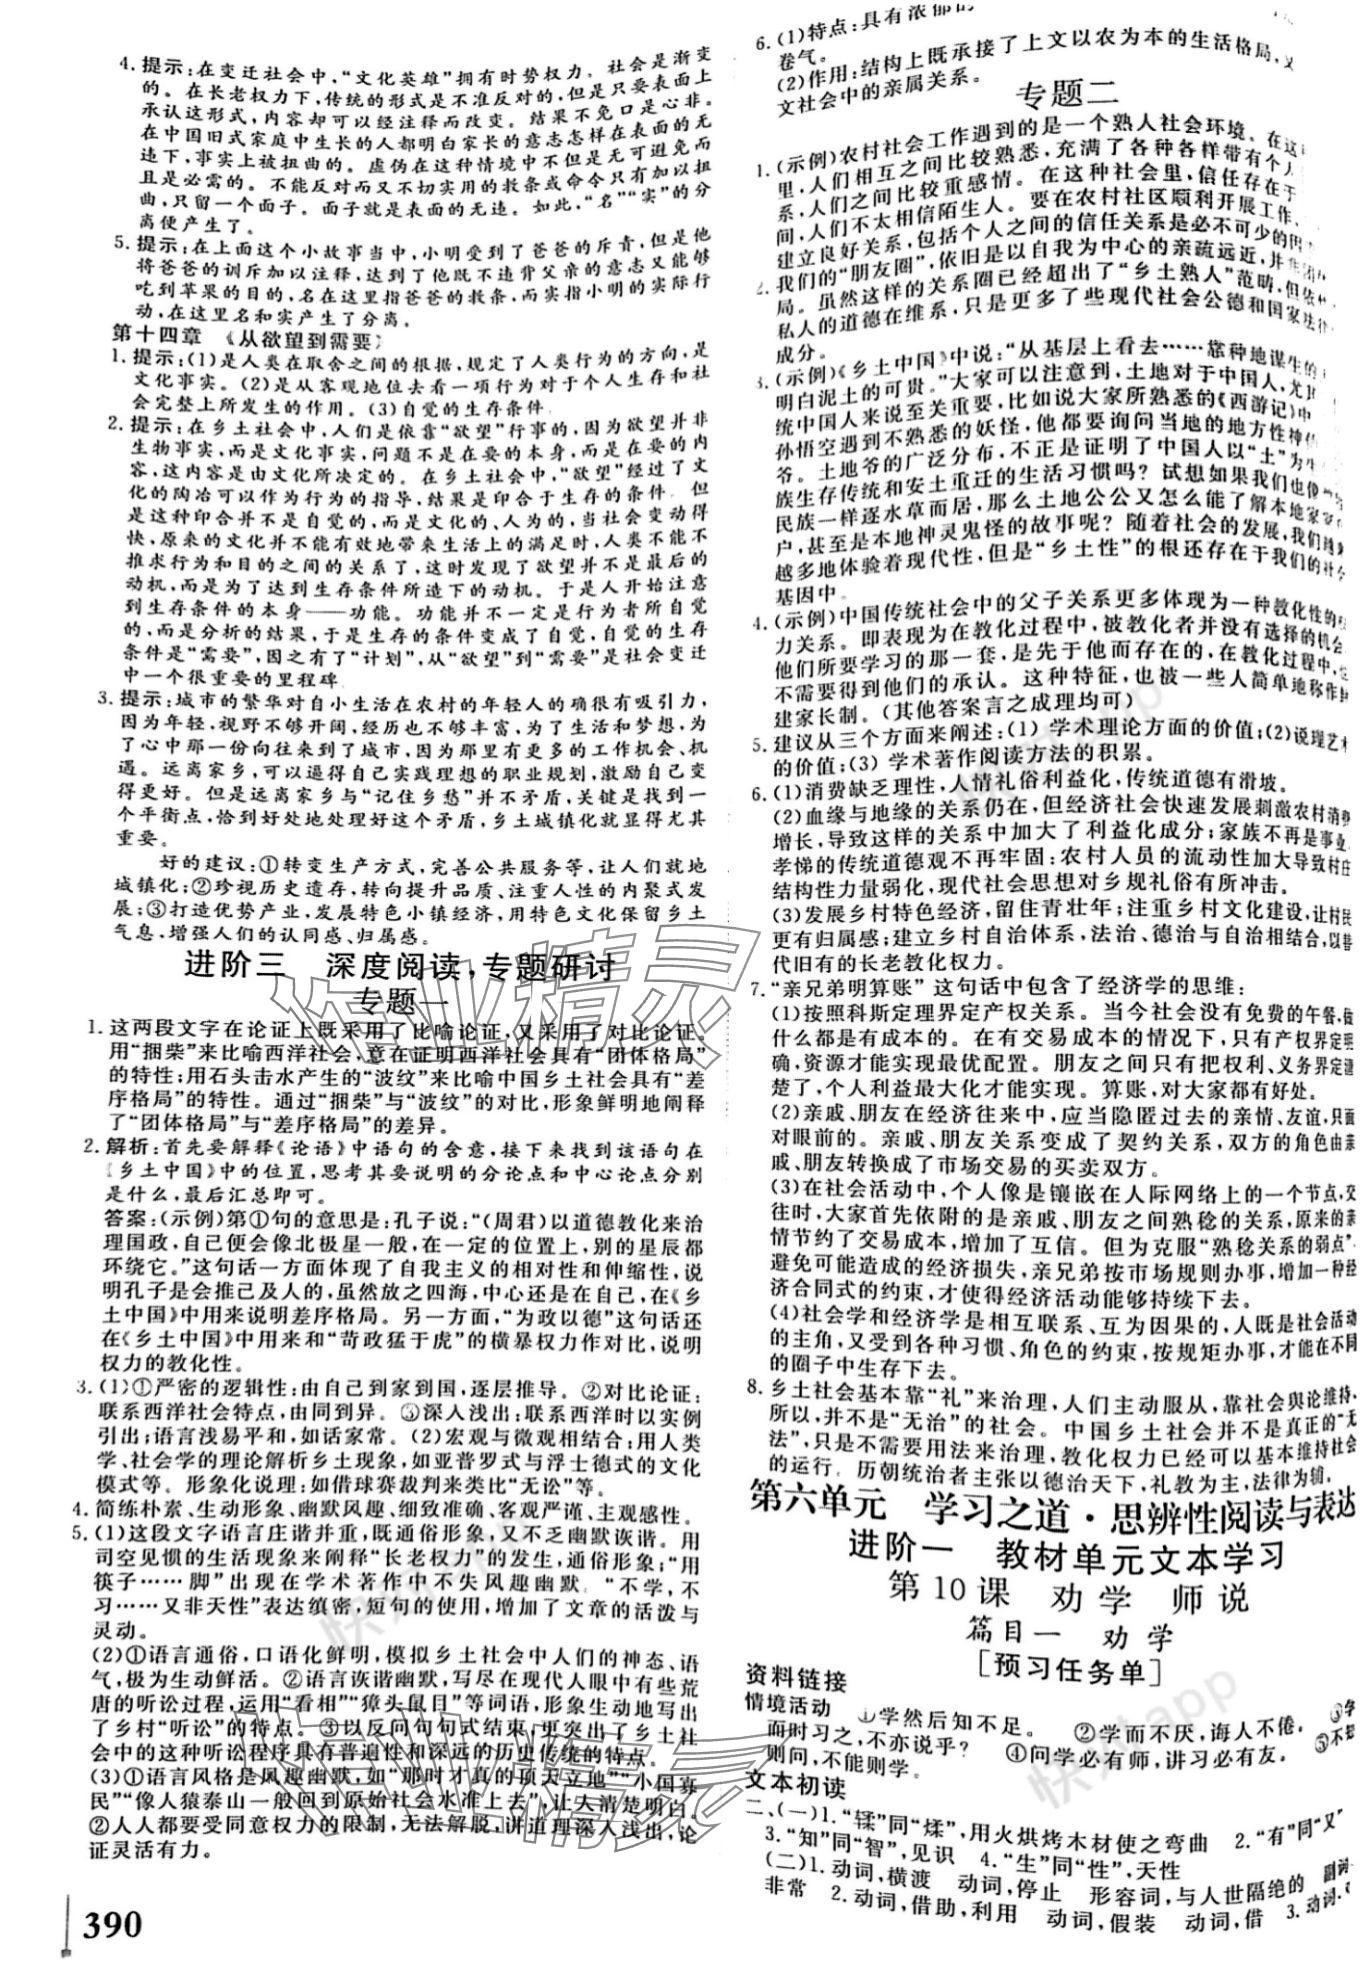 4. 提示:在变迁社会中,“文化英雄”拥有时势权力。社会是渐变
的。在长老权力下,传统的形式是不准反对的,但是只要表面上
承认这形式,内容却可以经注释而改变。结果不免口是心非。
在中国旧式家庭中生长的人都明白家长的意志怎样在表面的无
违下,事实上被扭曲的。虚伪在这种情境中不但是无可避免而
且是必需的。不能反对而又不切实用的教条或命令只有加以扭
曲,只留一个面子。面子就是表面的无违。如此,“名”“实”的分
离便产生了。
5. 提示:在上面这个小故事当中,小明受到了爸爸的斥青,但是他
将爸爸的训斥加以注释,达到了他既不违背父亲的意志又能够
吃到苹果的目的,名在这里指爸爸的教条,而实指小明的实际行
动,在这里名和实产生了分离。
第十四章 《从欲望到需要》
1. 提示:(1)是人类在取舍之间的根据,规定了人类行为的方向,是
文化事实。(2)是从客观地位去看一项行为对于个人生存和社
会完整上所发生的作用。(3)自觉的生存条件.
2. 提示:在乡土社会中,人们是依靠“欲望”行事的,因为欲望并非
生物事实,而是文化事实,问题不是在要的本身,而是在要的内
容,这内容是由文化所决定的。在乡土社会中,“欲望”经过了文
化的陶冶可以作为行为的指导,结果是印合于生存的条件. 但
是这种印合并不是自觉的,而是文化的、人为的,当社会变动得
快,原来的文化并不能有效地带来生活上的满足时,人类不能不
推求行为和目的之间的关系了,这时发现了欲望并不是最后的
动机,而是为了达到生存条件所造下的动机。于是人开始注意
到生存条件的本身——功能。功能并不一定是行为者所自觉
的,而是分析的结果,于是生存的条件变成了自觉,自觉的生存
条件是“需要”,因之有了“计划”,从“欲望”到“需要”是社会变迁
中一个很重要的里程碑.
3. 提示:城市的繁华对自小生活在农村的年轻人的确很有吸引力,
因为年轻,视野不够开阔,经历也不够丰富,为了生活和梦想,为
了心中那一份向往来到了城市,因为那里有更多的工作机会、机
遇。远离家乡,可以逼得自己实践理想的职业规划,激励自己变
得更好。但是远离家乡与“记住乡愁”并不矛盾,关键是找到一
个平衡点,恰到好处地处理好这个矛盾,乡土城镇化就显得尤其
重要。
好的建议:①转变生产方式,完善公共服务等,让人们就地
城镇化;②珍视历史遗存,转向提升品质、注重人性的内聚式发
展;③打造优势产业,发展特色小镇经济,用特色文化保留乡土
气息,增强人们的认同感、归属感。
进阶三 深度阅读,专题研讨
专题一
1. 这两段文字在论证上既采用了比喻论证,又采用了对比论证.
用“捆柴”来比喻西洋社会,意在证明西洋社会具有“团体格局”
的特性;用石头击水产生的“波纹”来比喻中国乡土社会具有“差
序格局”的特性。通过“捆柴”与“波纹”的对比,形象鲜明地阐释
了“团体格局”与“差序格局”的差异。
2. 解析:首先要解释《论语》中语句的含意,接下来找到该语句在
《乡土中国》中的位置,思考其要说明的分论点和中心论点分别
是什么,最后汇总即可。
答案:(示例)第①句的意思是:孔子说:“(周君)以道德教化来治
理国政,自己便会像北极星一般,在一定的位置上,别的星辰都
环绕它。”这句话一方面体现了自我主义的相对性和伸缩性,说
明孔子是会推己及人的,虽然放之四海,中心还是在自己,在《乡
土中国》中用来说明差序格局。另一方面,“为政以德”这句话还
在《乡土中国》中用来和“苛政猛于虎”的横暴权力作对比,说明
权力的教化性。
3. (1)①严密的逻辑性:由自己到家到国,逐层推导。②对比论证:
联系西洋社会特点,由同到异。③深入浅出:联系西洋时以实例
引出;语言浅易平和,如话家常。(2)宏观与微观相结合:用人类
学、社会学的理论解析乡土现象,如亚普罗式与浮士德式的文化
模式等。形象化说理:如借球赛裁判来类比“无讼”等。
4. 简练朴素、生动形象、幽默风趣、细致准确、客观严谨、主观感性。
5. (1)这段文字语言庄谐并重,既通俗形象,又不乏幽默诙谐。用
司空见惯的生活现象来阐释“长老权力”的发生,通俗形象;“用
筷子……脚”出现在学术著作中不失风趣幽默.“不学,不
习……又非天性”表达缜密,短句的使用,增加了文章的活泼与
灵动。
(2)①语言通俗,口语化鲜明,模拟乡土社会中人们的神态、语
气,极为生动鲜活。②语言诙谐幽默,写尽在现代人眼中有些荒
唐的听讼过程,运用“看相”“獐头鼠目”等词语,形象生动地写出
了乡村“听讼”的特点。③以反问句句式结束,更突出了乡土社
会中的这种听讼程序具有普遍性和深远的历史传统的特点。
(3)①语言风格是风趣幽默,如“那时才真的顶天立地”“小国寡
民”“像人猿泰山一般回到原始社会水准上去”,让人清楚明白。
②人人都要受同意权力的限制,无法解脱,讲道理深入浅出,论
证灵活有力。
390
6. (1)特点:具有浓郁的
卷气。
(2)作用:结构上既承接了上文以农为本的生活格局,又
文社会中的亲属关系。
专题二
1. (示例)农村社会工作遇到的是一个熟人社会环境。在这
里,人们相互之间比较熟悉,充满了各种各样带有个人
系,人们之间比较重感情。在这种社会里,信任存在于
间,人们不太相信陌生人。要在农村社区顺利开展工作、
建立良好关系,包括个人之间的信任关系是必不可少的因
2. 我们的“朋友圈”,依旧是以自我为中心的亲疏远近,并
局。虽然这样的关系圈已经超出了“乡土熟人”范畴,但依
私人的道德在维系,只是更多了些现代社会公德和国家法律
成分。
3. (示例)《乡土中国》中说:“从基层上看去……靠种地谋生的
明白泥土的可贵。”大家可以注意到,土地对于中国人,尤其
统中国人来说至关重要,比如说大家所熟悉的《西游记》中
孙悟空遇到不熟悉的妖怪,他都要询问当地的地方性神
爷。土地爷的广泛分布,不正是证明了中国人以“土”为
族生存传统和安土重迁的生活习惯吗?试想如果我们也像
民族一样逐水草而居,那么土地公公又怎么能了解本地家
户,甚至是本地神灵鬼怪的故事呢?随着社会的发展,我们越
越多地体验着现代性,但是“乡土性”的根还存在于我们的社
基因中.
4. (示例)中国传统社会中的父子关系更多体现为一种教化性的
力关系。即表现为在教化过程中,被教化者并没有选择的机会,
他们所要学习的那一套,是先于他而存在的,在教化过程中,
不需要得到他们的承认。这种特征,也被一些人简单地称作封
建家长制。(其他答案言之成理均可)
5. 建议从三个方面来阐述:(1) 学术理论方面的价值;(2)说理艺术
的价值;(3) 学术著作阅读方法的积累。
6. (1)消费缺乏理性,人情礼俗利益化,传统道德有滑坡。
(2)血缘与地缘的关系仍在,但经济社会快速发展刺激农村消费
增长,导致这样的关系中加大了利益化成分;家族不再是事业
孝悌的传统道德观不再牢固:农村人员的流动性加大导致村庄
结构性力量弱化,现代社会思想对乡规礼俗有所冲击。
(3)发展乡村特色经济,留住青壮年;注重乡村文化建设,让村民
更有归属感;建立乡村自治体系,法治、德治与自治相结合,以替
代旧有的长老教化权力。
7. “亲兄弟明算账”这句话中包含了经济学的思维:
(1)按照科斯定理界定产权关系。当今社会没有免费的午餐,做
什么都是有成本的。在有交易成本的情况下,只有产权界定明
确,资源才能实现最优配置。朋友之间只有把权利、义务界定清
楚了,个人利益最大化才能实现。算账,对大家都有好处。
(2)亲戚、朋友在经济往来中,应当隐匿过去的亲情、友谊,只面
对眼前的。亲戚、朋友关系变成了契约关系,双方的角色由亲
戚、朋友转换成了市场交易的买卖双方。
(3)在社会活动中,个人像是镶嵌在人际网络上的一个节点,交
往时,大家首先依附的是亲戚、朋友之间熟稔的关系,原来的亲
情节约了交易成本,增加了互信。但为克服“熟稔关系的弱点”,
避免可能造成的经济损失,亲兄弟按市场规则办事,增加一种经
济合同式的约束,才使得经济活动能够持续下去。
(4)社会学和经济学是相互联系、互为因果的,人既是社会活动
的主角,又受到各种习惯、角色的约束,按规矩办事,才能在不同
的圈子中生存下去。
8. 乡土社会基本靠“礼”来治理,人们主动服从,靠社会舆论维持,
所以,并不是“无治”的社会。中国乡土社会并不是真正的“无
法”,只是不需要用法来治理,教化权力已经可以基本维持社会
的运行。历朝统治者主张以德治天下,礼教为主,法律为辅。
第六单元 学习之道·思辨性阅读与表达
进阶一 教材单元文本学习
第10课 劝学 师说
篇目一 劝学
[预习任务单]
资料链接
情境活动 ①学然后知不足。 ②学而不厌,诲人不倦。 ③学
而时习之,不亦说乎? ④问学必有师,讲习必有友。 ⑤不
则问,不能则学。
文本初读
二、(一)1.“𫐓”同“煣”,用火烘烤木材使之弯曲 2.“有”同“又”
3.“知”同“智”,见识 4.“生”同“性”,天性
(二)1. 动词,横渡 动词,停止 形容词,与人世隔绝的 副词
非常 2. 动词,借助,利用 动词,假装 动词,借 3. 动词,
作业精灵
作业精灵
快对app
快对app
快对app
快对app